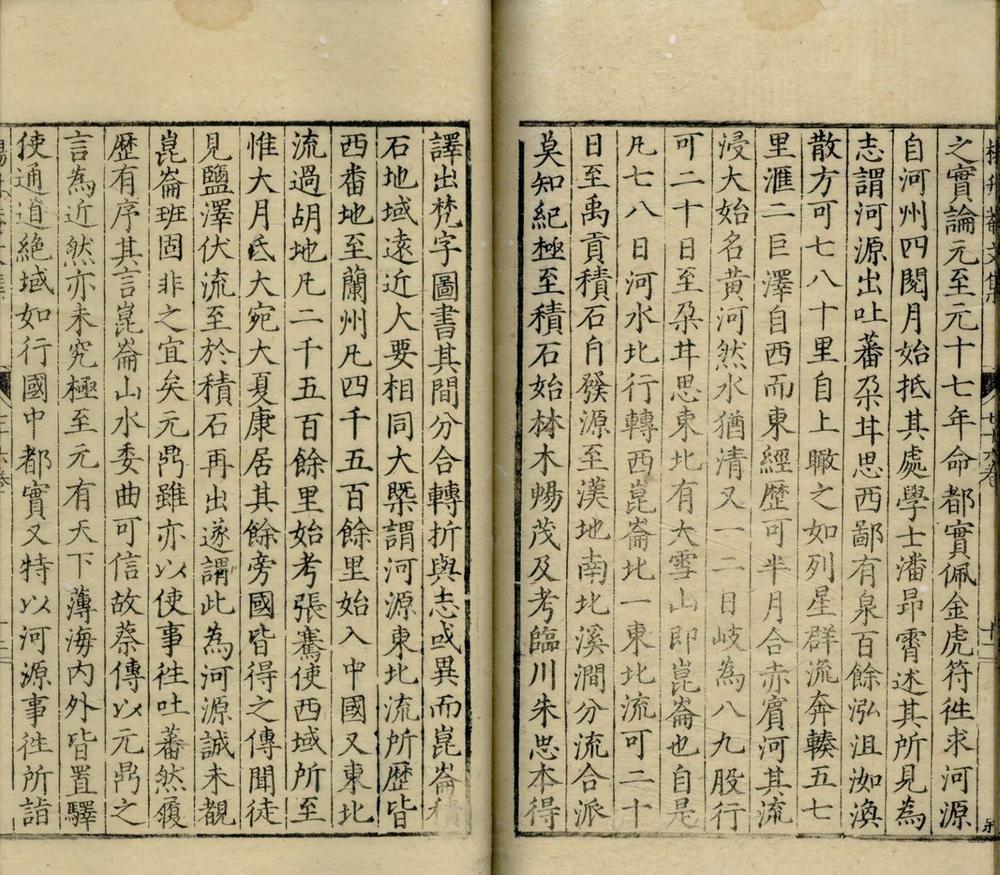 之實論元至元十七年命都實佩金虎符徃求河源
自河州四閱月始抵其處學士潘昂霄述其所見為
志謂河源出吐蕃朶甘思西鄙有泉百餘泓沮洳渙
散方可七八十里自上瞰之如列星群流奔輳五七
里滙二巨澤自西而東經歷可半月合赤賓河其流
浸大始名黃河然水猶清又一二日岐為八九股行
可二十日至朶甘思東北有大雪山即崑崙也自是
凡七八日河水北行轉西崑崙北一東北流可二十
日至禹貢積石自發源至漢地南北溪澗分流合派
莫知紀極至積石始林木暢茂及考臨川朱思本得
譯出梵字圖書其間分合轉折與志或異而崑崙積
石地域遠近大要相同大槩謂河源東北流所歷皆
西番地至蘭州凡四千五百餘里始入中國又東北
流過胡地凡二千五百餘里始考張騫使西域所至
惟大月氏大宛大夏康居其餘旁國皆得之傳聞徒
見鹽澤伏流至於積石再出遂謂此為河源誠未覩
崑崙班固非之宜矣元鼎雖亦以使事徃吐蕃然履
歷有序其言崑崙山水委曲可信故蔡傳以元鼎之
言為近然亦未究極至元有天下薄海內外皆置驛
使通道絕域如行國中都實又特以河源事徃所詣